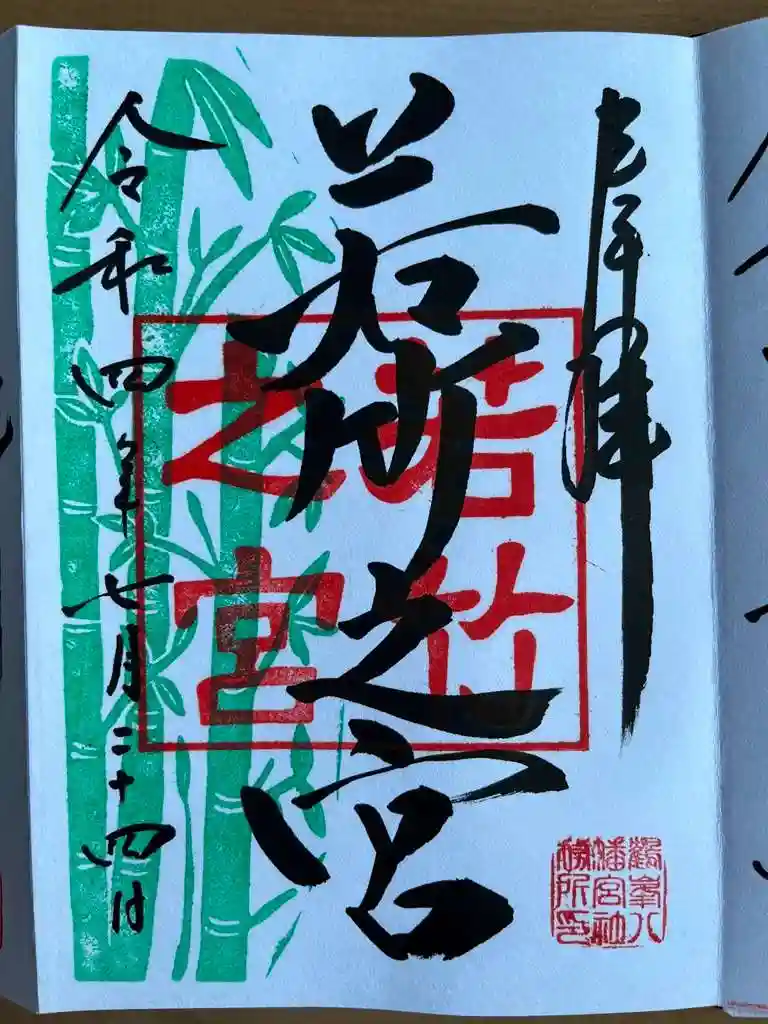 奉拝
鶴峯八
幡宮社
務所印
若竹之宮
若竹
之宮
令和四年七月二十四日